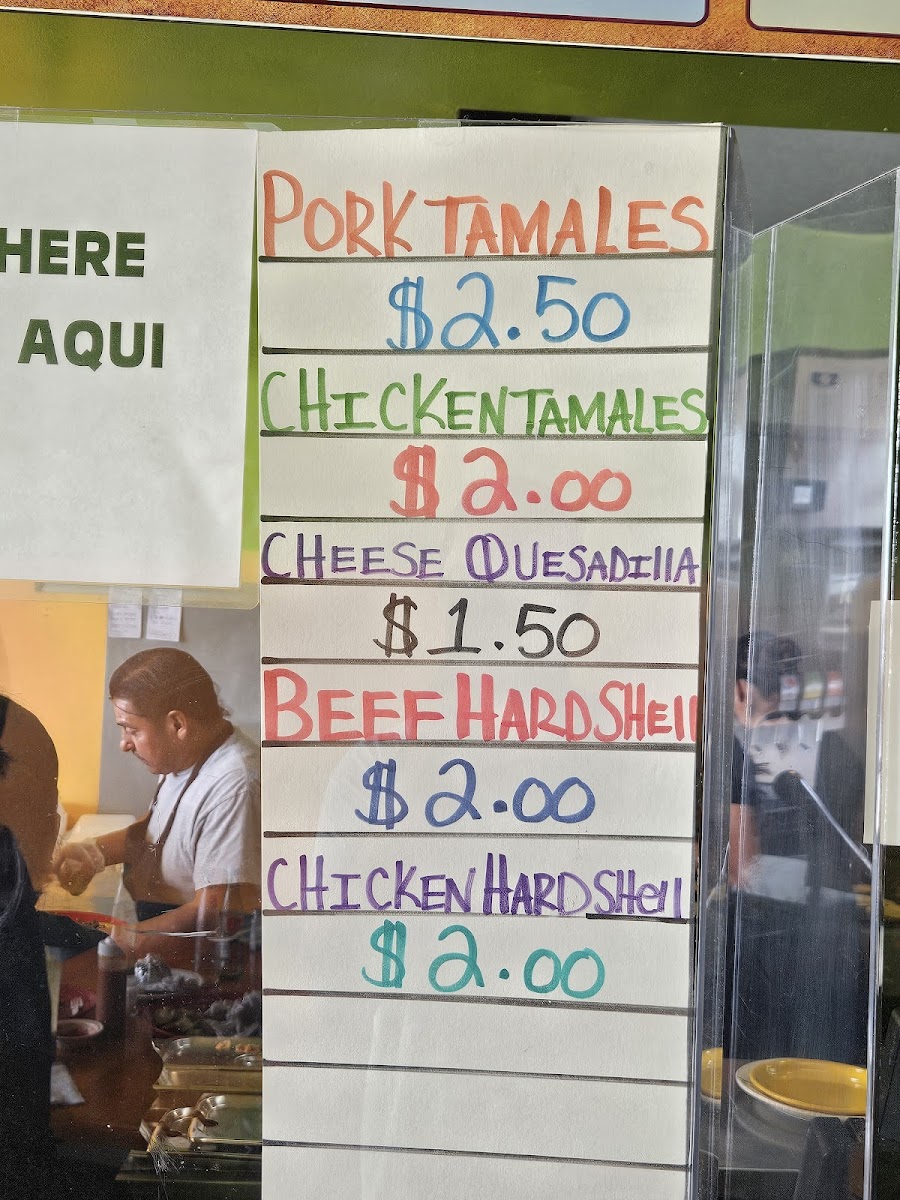 HERE
AQUI
PORK TAMALES
$2.50
CHICKEN TAMALES
$2.00
CHEESE QUESADIllA
$1.50
BEEF HARD SHEll
$2.00
CHICKEN HARD SHell
$2.00